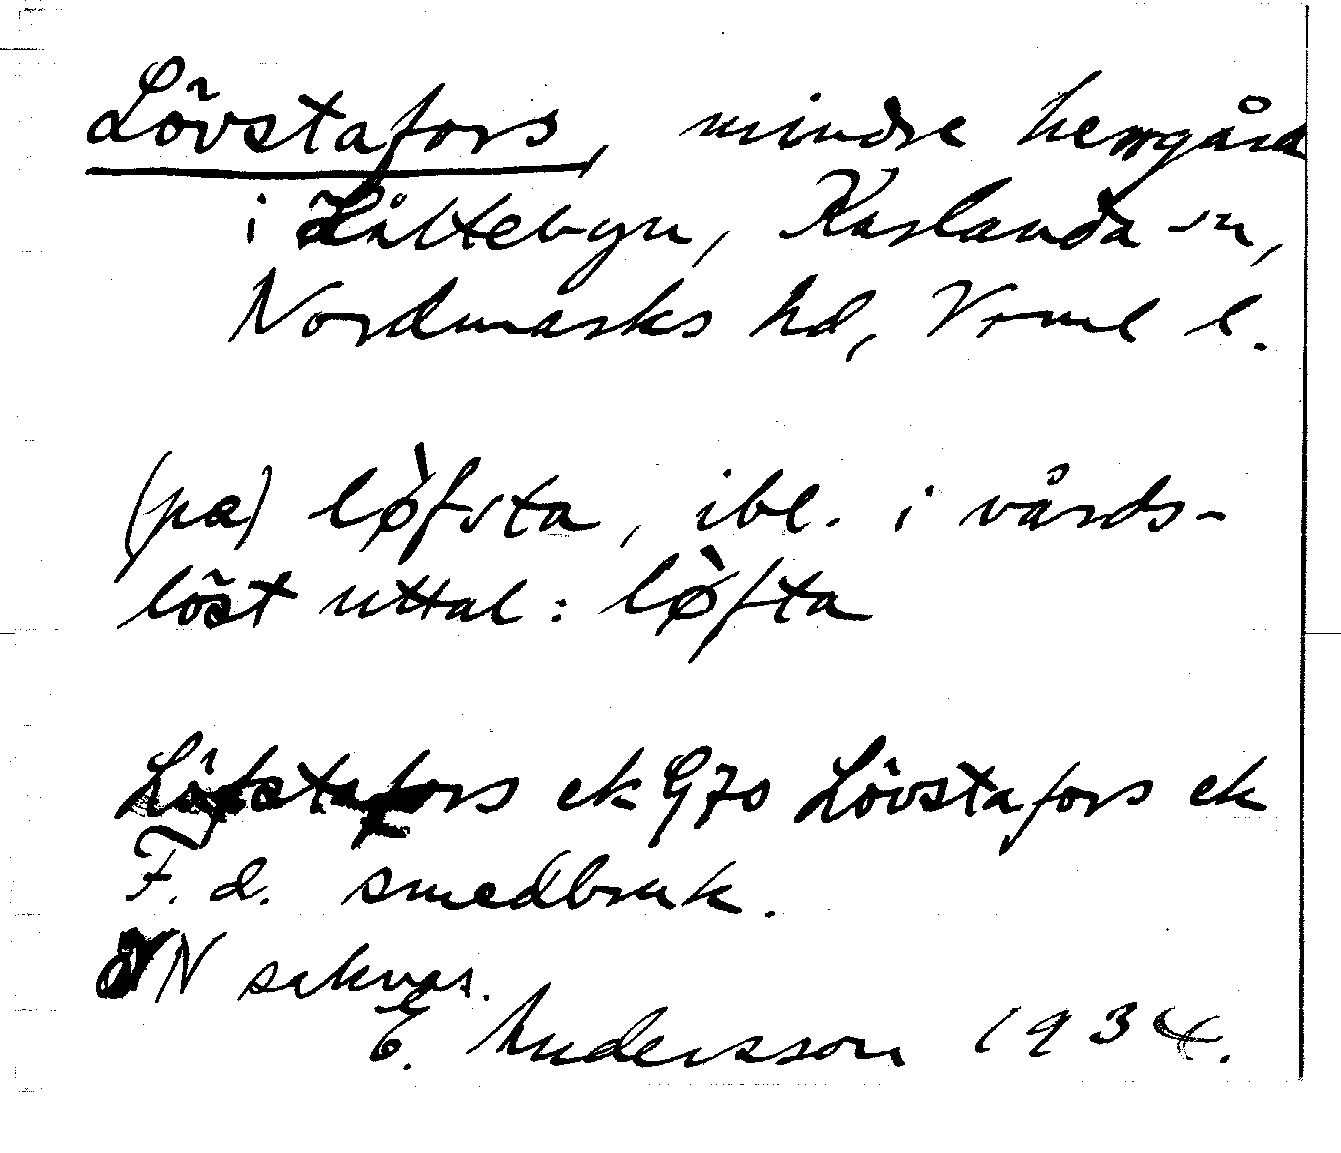 Lövstafors, mindre herrgård
i Håltebyn, Karlanda sn,
Nordmarks hd, Vrml l.
(pa) lø̀fsta, ibl. i vårds-
löst uttal: lø̀fta
Löfstafors ek G70 Lövstafors ek
F. d. smedbruk.
ON saknas.
E. Andersson 1934.